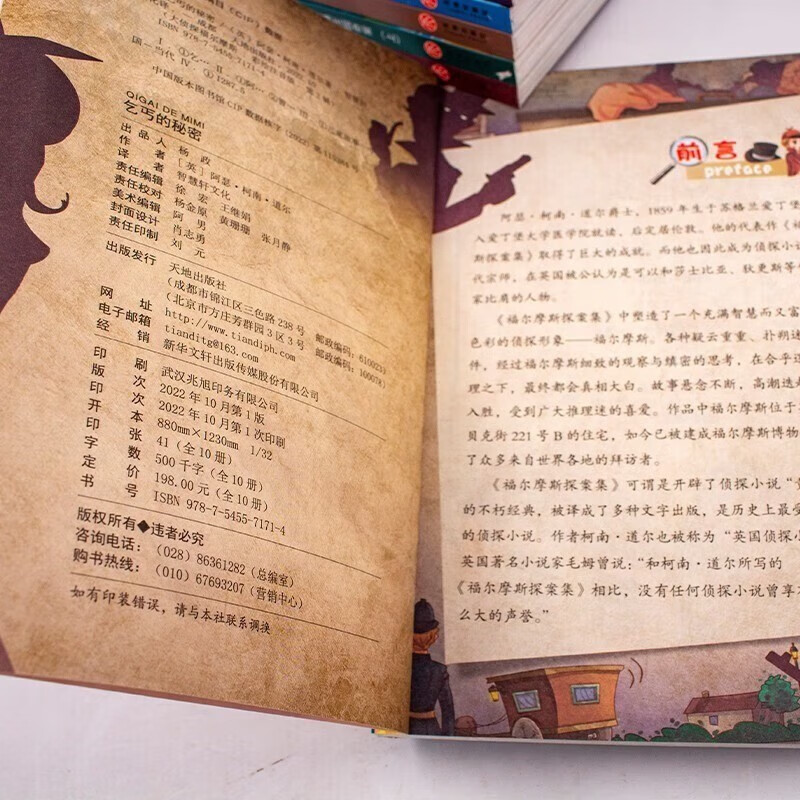 ISBN 978-7-5455-7171-4
中国版本图书馆CIP数据核字
QIGAI DE MIMI
乞丐的秘密
出品人 杨 政
作者 [英]阿瑟·柯南·道尔
译者 智慧轩文化
责任编辑 徐 宏 王继娟
责任校对 杨金原 黄珊珊 张月静
美术编辑 阿 男
封面设计 肖志勇
责任印制 刘 元
出版发行 天地出版社
(成都市锦江区三色路238号 邮政编码:610023)
(北京市方庄芳群园3区3号 邮政编码:100078)
网址 http://www.tiandiph.com
电子邮箱 tianditg@163.com
经销 新华文轩出版传媒股份有限公司
印刷 武汉兆旭印务有限公司
版次 2022年10月第1版
印次 2022年10月第1次印刷
开本 880mm×1230mm 1/32
印张 41(全10册)
字数 500千字(全10册)
定价 198.00元(全10册)
书号 ISBN 978-7-5455-7171-4
版权所有◆违者必究
咨询电话:(028)86361282(总编室)
购书热线:(010)67693207(营销中心)
如有印装错误,请与本社联系调换
前言
preface
阿瑟·柯南·道尔爵士,1859年生于苏格兰爱丁堡
入爱丁堡大学医学院就读,后定居伦敦。他的代表作《福
斯探案集》取得了巨大的成就。而他也因此成为侦探小说
代宗师,在英国被公认为是可以和莎士比亚、狄更斯等
家比肩的人物。
《福尔摩斯探案集》中塑造了一个充满智慧而又富
色彩的侦探形象——福尔摩斯。各种疑云重重、扑朔迷
件,经过福尔摩斯细致的观察与缜密的思考,在合乎
理之下,最终都会真相大白。故事悬念不断,高潮迭
入胜,受到广大推理迷的喜爱。作品中福尔摩斯位于
贝克街221号B的住宅,如今已被建成福尔摩斯博物
了众多来自世界各地的拜访者。
《福尔摩斯探案集》可谓是开辟了侦探小说“
的不朽经典,被译成了多种文字出版,是历史上最受
的侦探小说。作者柯南·道尔也被称为“英国侦探小
英国著名小说家毛姆曾说:“和柯南·道尔所写的
《福尔摩斯探案集》相比,没有任何侦探小说曾享
么大的声誉。”